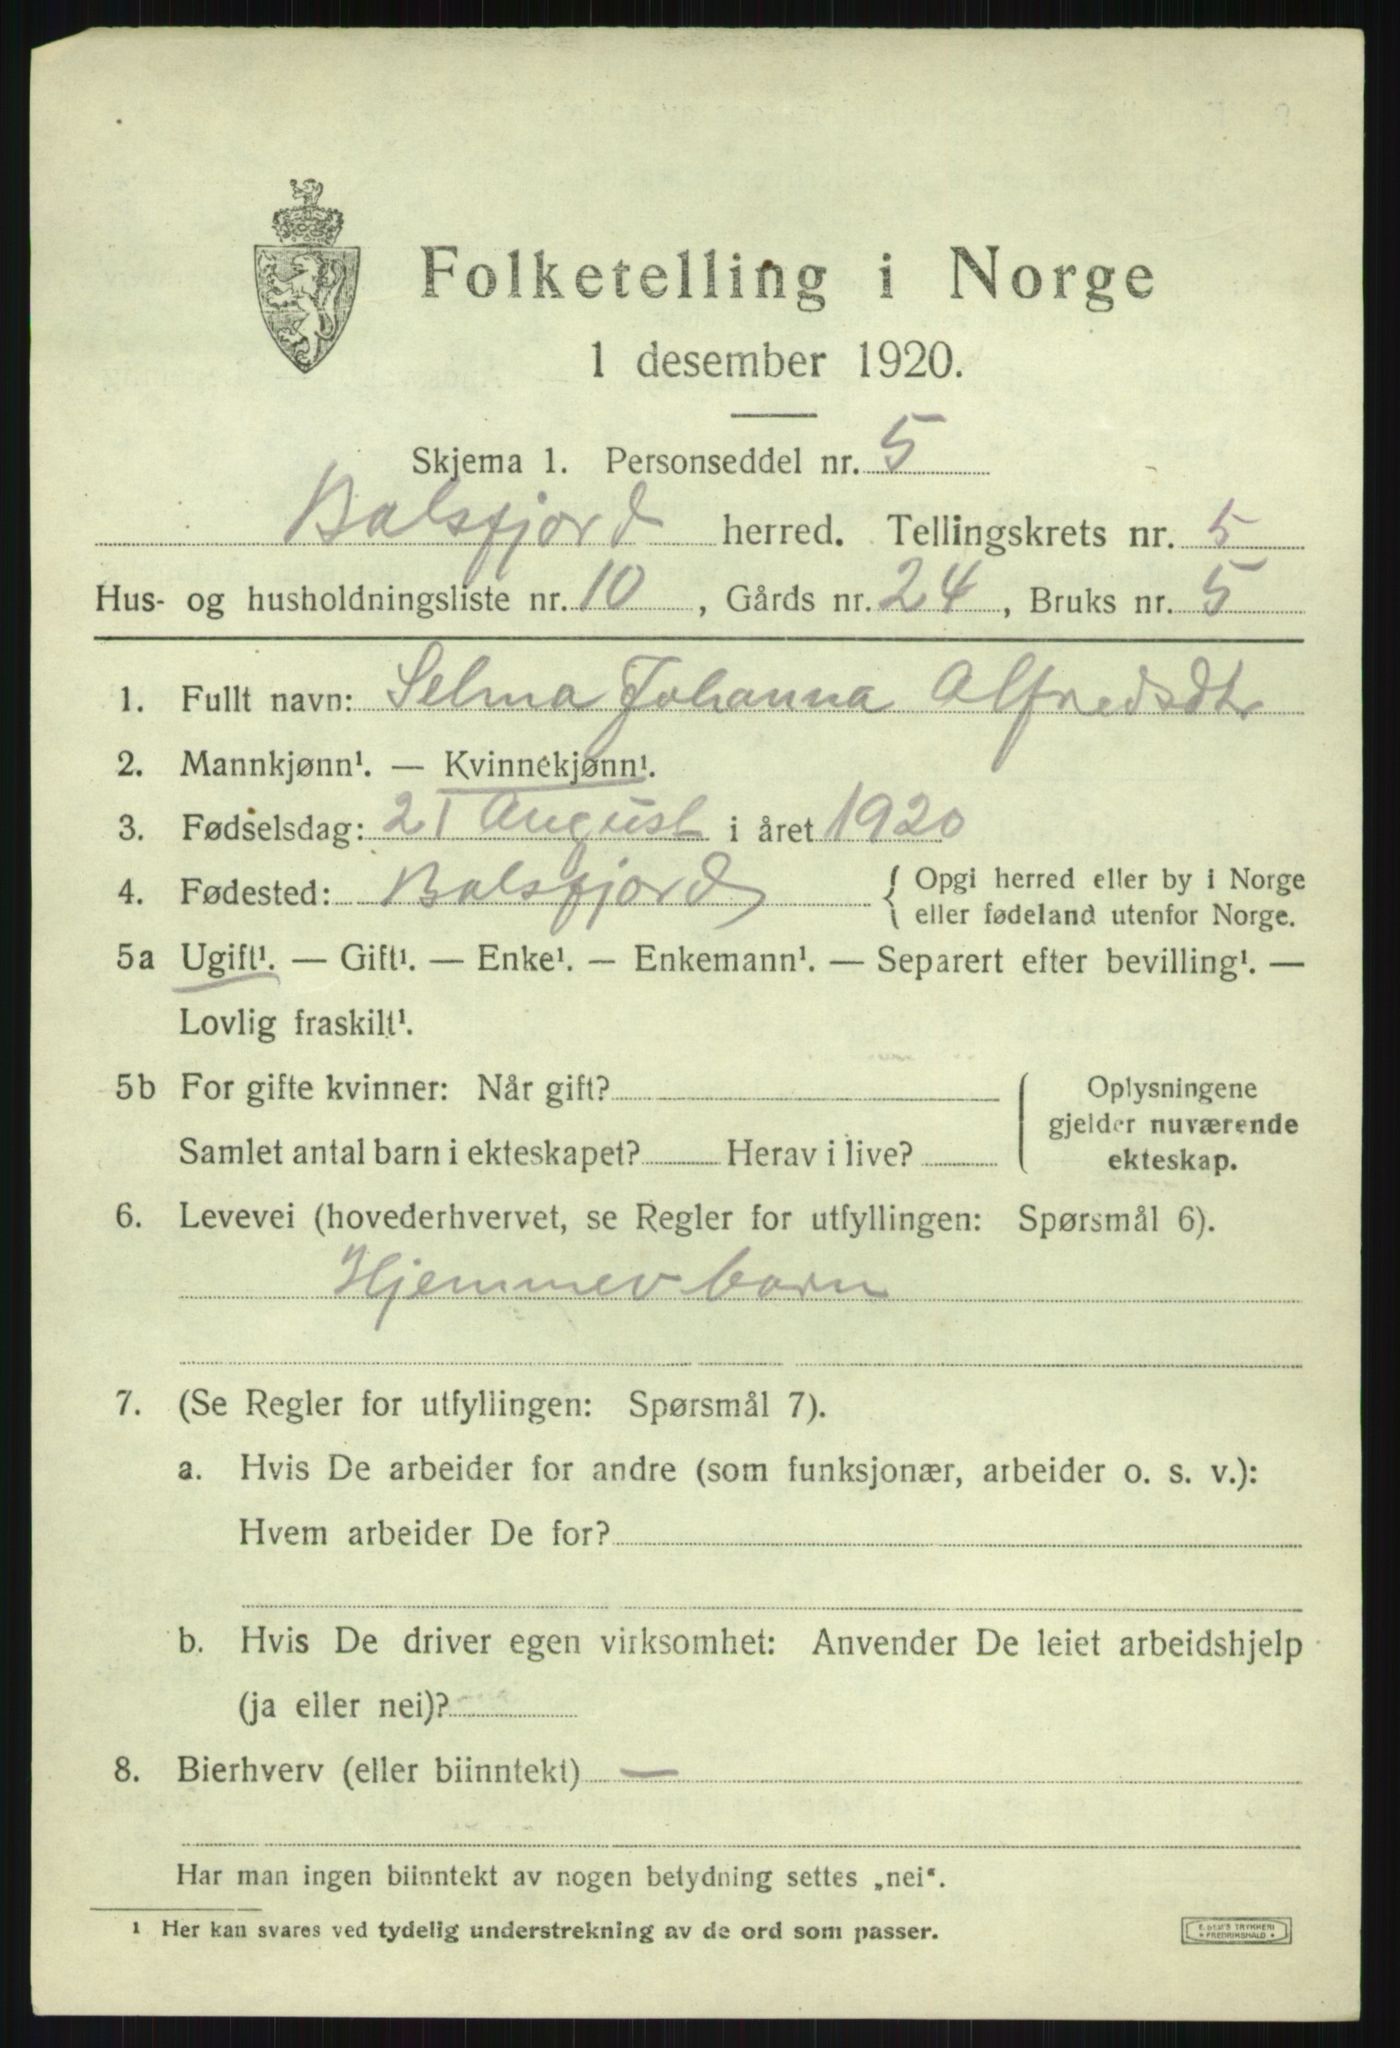 Folketelling i Norge
1 desember 1920.
Skjema 1. Personseddel nr. 5
Balsfjord herred. Tellingskrets nr. 5
Hus- og husholdningsliste nr. 10, Gårds nr. 24, Bruks nr. 5
1. Fullt navn: Selma Johanna Alfredsdtr
2. Mannkjønn¹. — Kvinnekjønn¹.
3. Fødselsdag: 21 August i året 1920
4. Fødested: Balsfjord { Opgi herred eller by i Norge
eller fødeland utenfor Norge.
5a Ugift¹. — Gift¹. — Enke¹. — Enkemann¹. — Separert efter bevilling¹. —
Lovlig fraskilt¹.
5b For gifte kvinner: Når gift? Oplysningene
gjelder nuværende
Samlet antal barn i ekteskapet? Herav i live? ekteskap.
6. Levevei (hovederhvervet, se Regler for utfyllingen: Spørsmål 6).
Hjemmev barn
7. (Se Regler for utfyllingen: Spørsmål 7).
a. Hvis De arbeider for andre (som funksjonær, arbeider o. s. v.):
Hvem arbeider De for?
b. Hvis De driver egen virksomhet: Anvender De leiet arbeidshjelp
(ja eller nei)?
8. Bierhverv (eller biinntekt) —
Har man ingen biinntekt av nogen betydning settes „nei“.
¹ Her kan svares ved tydelig understrekning av de ord som passer.
E. SEM'S TRYKKERI
* FREDRIKSHALD *